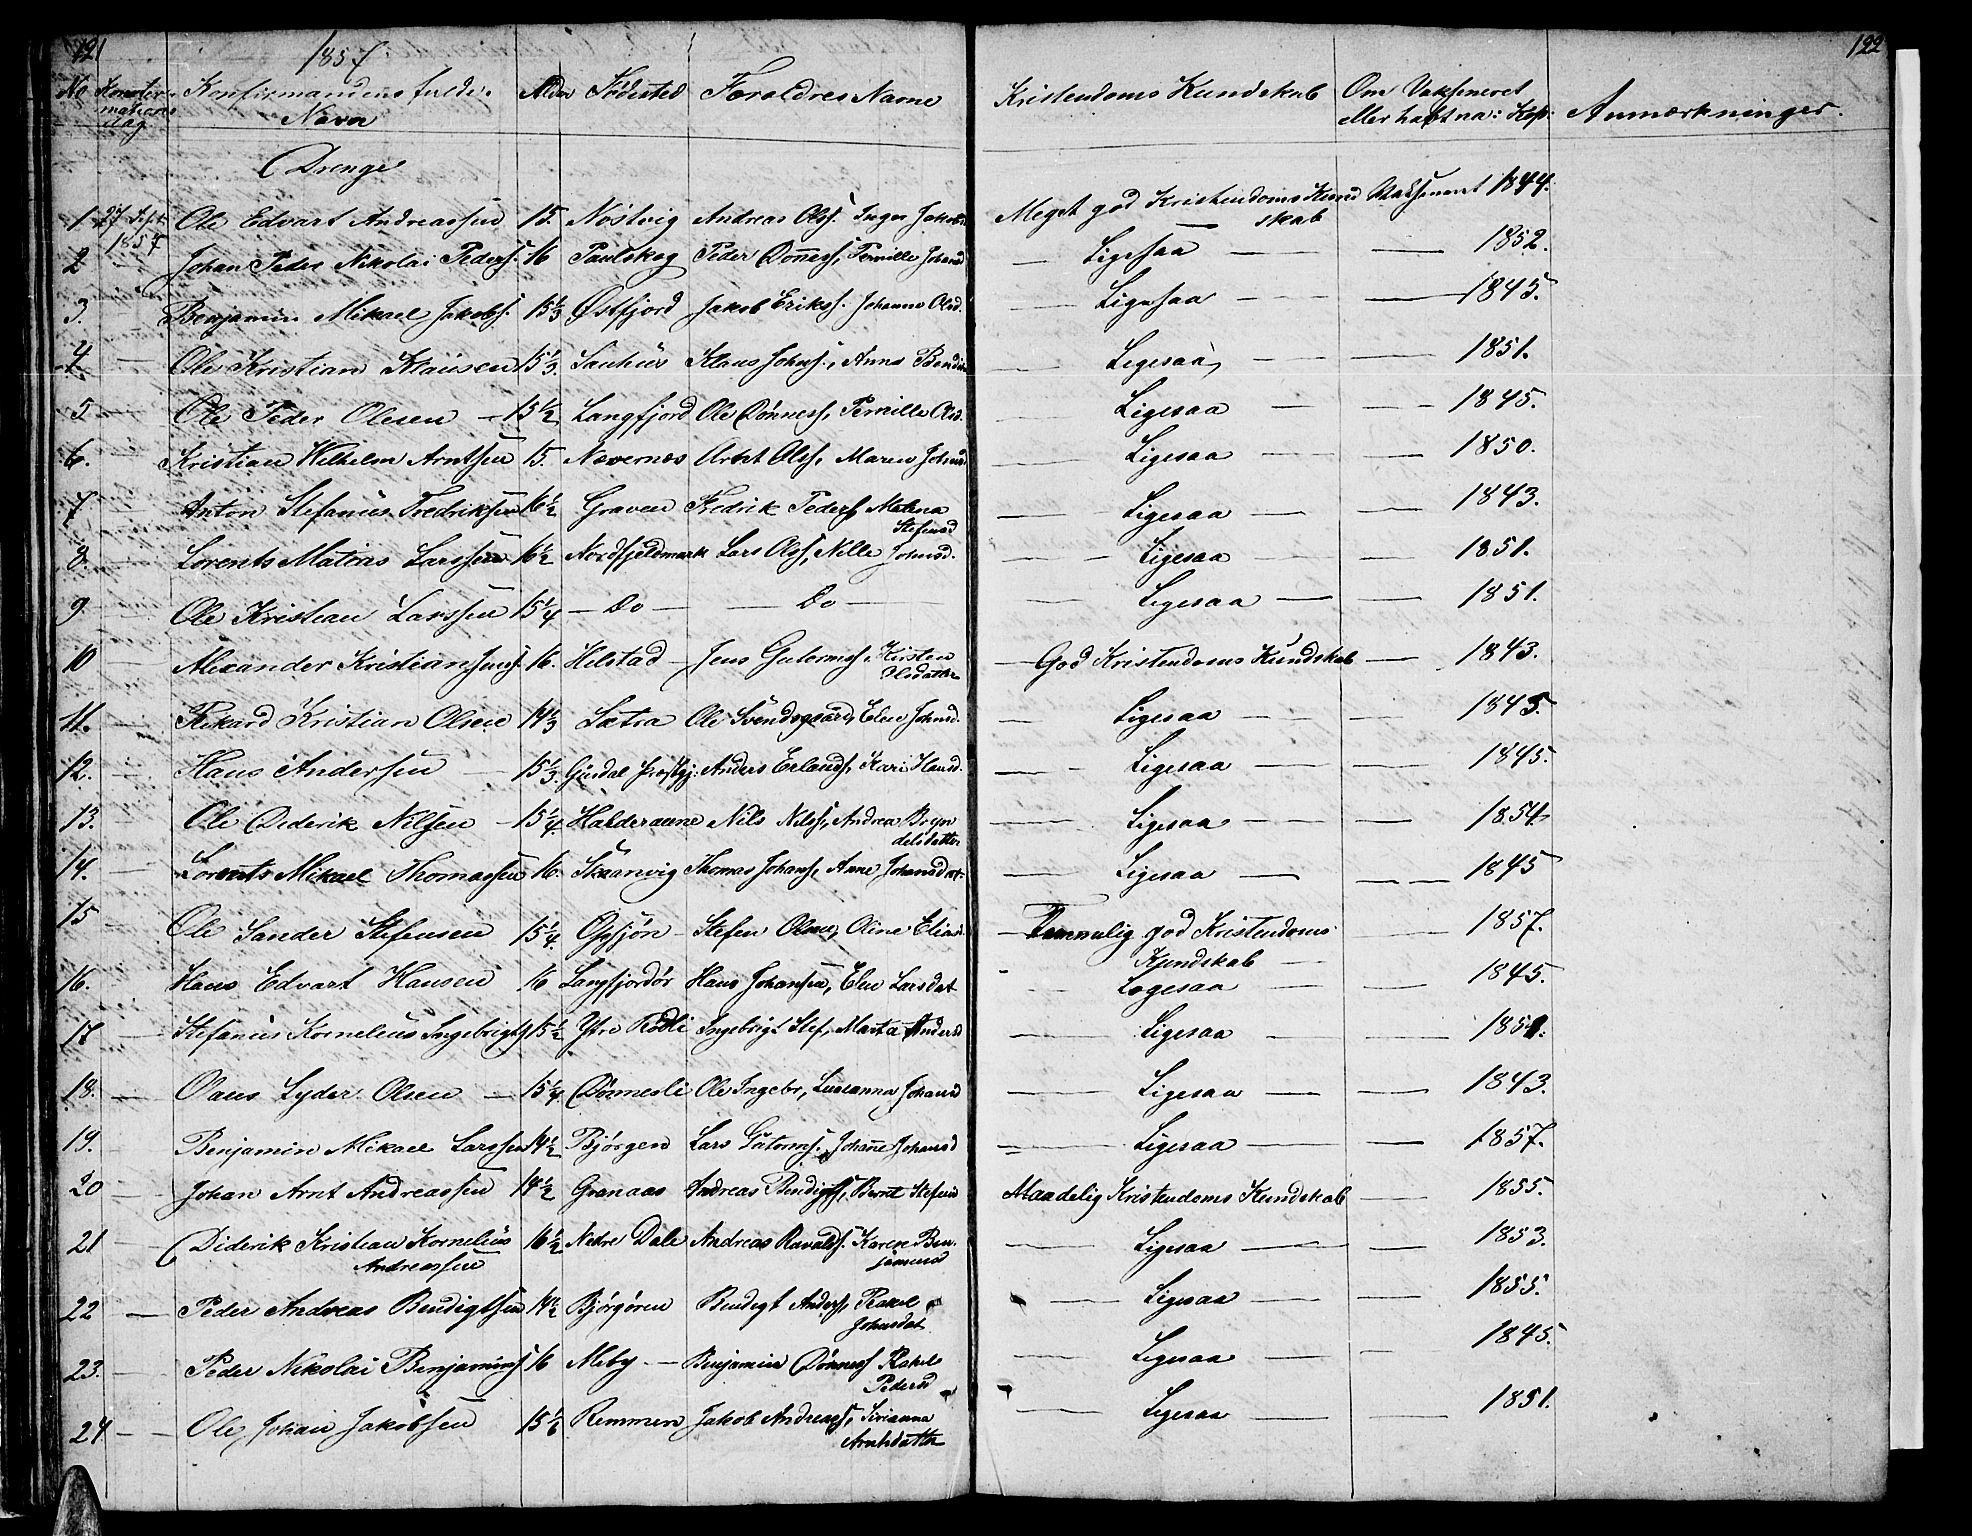 121
1857
122
No Konfirmations dag Konfirmandens fulde Navn Alder Fødested Foreldres Navne Kristendoms Kundskab Om Vaksineret eller havt na: Kop: Anmærkninger.
Drenge
1 27 Sept 1857 Ole Edvart Andreassen 15. Nøstvig Andreas Olss. Inger Meget god Kristendoms Kundskab Vaksineret 1844.
2 — Johan Peder Nikolai Peders. 16 Paulskog Peder Dønness, Pernille Johansd — Ligesaa — — 1852.
3. Benjamin Mikael Jakobs. 15 1/3 Østfjord Jakob Erikss. Johanna Olsd. — Ligesaa — — 1845.
4. — Ole Kristian Klausen 15 1/3. Klaus Johnss., Anna — Ligesaa — — 1851.
5. Ole Peder Olesen — 15 1/2 Langfjord Ole Dønness, Pernille Olsd. — Ligesaa — — 1845.
6. Kristian Wilhelm Arntsen 15. Nævernes Arnt Olss, Maren Johnsd — Ligesaa — — 1850.
7 — Anton Stefanus Fredriksen 16 1/2 Graven Fredrik Peders Stefensd — Ligesaa — — 1843.
8. — Lorents Matias Larssen 16 1/2 Nordfjeldmark Lars Olss, Nille Johnsd. — Ligesaa — — 1851.
9. Ole Kristian Larssen 15 1/4 — Do — — Do — — Ligesaa — — 1851.
10 Alexander Kristian Jens. 16. Helstad — Jens Gutormss. Kirsten Olsdatter — God Kristendoms Kundskab — 1843.
11. — Rikard Kristian Olsen 14 1/3 Sætra Ole Svendsgaard, Elen Johnsd. — Ligesaa — — 1845.
12. — Hans Andersen — 15 1/3. Præstgj: Anders Erlands, Kari Hansd. — Ligesaa — — 1845.
13. Ole Diderik Nilsen — 15 1/4. Halderaune Nils Nilss, Andrea Bryndelsdatter — Ligesaa — — 1854
14. — Lorents Mikael Thomassen 16. Skaanvig Thomas Johans, Anne Johansdat. — Ligesaa — — 1845
15 Ole Sander Stefensen 15 1/4. Opsjøn — Stefen Olsen, Oline Eliasd. — Temmelig god Kristendoms Kundskab — — 1857.
16. Hans Edvart Hansen 16 Langfjordør Hans Johansen, Elen Larsdat — Ligesaa — — 1845.
17 — Stefanus Kornelius Ingebrigts 15 1/2 Ytre Rødli Ingebrigt Stef, Marta Andersd — Ligesaa — — 1851.
18. — Olaus Lyder Olsen — 15 1/4 Dønnesli Ole Ingebr, Johansd — Ligesaa — — 1843.
19. Benjamin Mikael Larssen 14 1/2 Bjørgen Lars Gutorms. Johane Johansd — Ligesaa — — 1857.
20 — Johan Arnt Andreassen 14 1/2 Granaas Andreas Bendigts, Bernt Stefensd Maadelig Kristendoms Kundskab — 1855.
21 — Diderik Kristian Kornelius Andreassen 16 1/2 Nedre Dale Andreas Ravalds. Karen Benjaminsd — Ligesaa — — 1853.
22 — Peder Andreas Bendigtsen 14 1/2 Bjørgøren Bendigt Anders, Rakel Johnsdat — Ligesaa — — 1855.
23. — Peder Nikolai Benjamins 16 Meby — Benjamin Dønness Rakel Pedersd — Ligesaa — — 1845.
24 — Ole Johan Jakobsen 15 1/6 Remmen Jakob Andreass, Sirianna Arntsdatter — Ligesaa — — 1851.